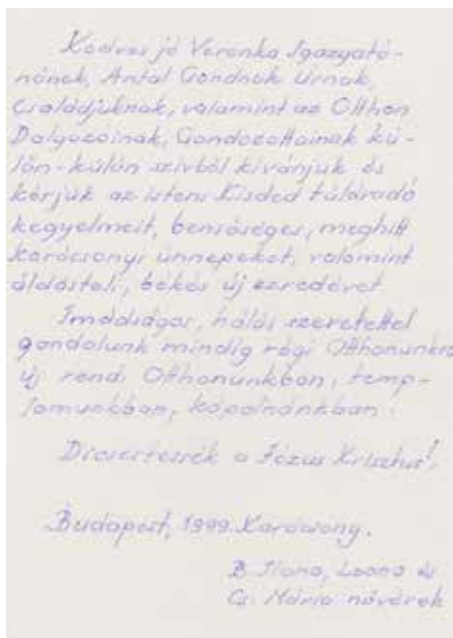 Kedves jó Veronka Igazgató-
nőnek, Antal Gondnok Úrnak,
Családjuknak, valamint az Otthon
Dolgozóinak, Gondozottainak kü-
lön-külön szívből kívánjuk és
kérjük az isteni Kisded túláradó
kegyelmeit, bensőséges, meghitt
karácsonyi ünnepeket, valamint
áldásteli, békés új ezredévet.
Imádságos, hálás szeretettel
gondolunk mindig régi Otthonunkra
új rendi Otthonunkban, temp-
lomunkban, kápolnánkban.
Dicsértessék a Jézus Krisztus!
Budapest, 1999. Karácsony.
B. Ilona, Leona és
Cs. Mária nővérek